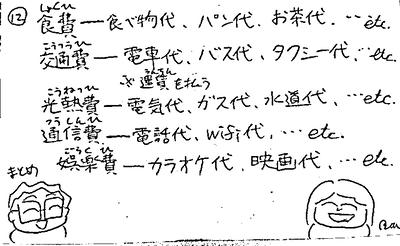 ⑫ 食費 — 食べ物代、パン代、お茶代、…etc.
しょくひ
交通費 — 電車代、バス代、タクシー代、…etc.
こうつうひ
うんちん
※運賃を払う
こうねつひ
光熱費 — 電気代、ガス代、水道代、…etc.
つうしんひ
通信費 — 電話代、wifi代、…etc.
ごらくひ
娯楽費 — カラオケ代、映画代、…etc.
まとめ